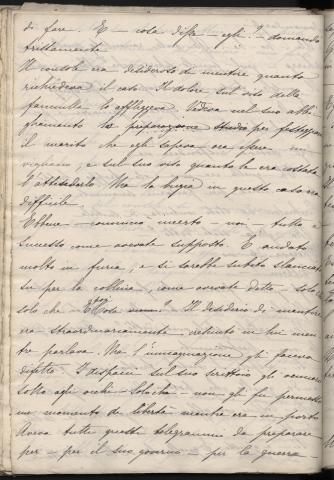 di fare. E — cosa disse — egli? — domandò
frettamente.
Il console era desideroso di mentire quanto
richiedeva il caso. Il dolore sul viso della
fanciulla lo affliggeva. Vedeva nel suo abbi-
gliamento la preparazione studio per festeggiare
il marito che egli sapeva ora essere un
vigliacco, e sul suo viso quanto le era costato
l'attenderlo. Ma la bugia in questo caso era
difficile.
Ebbene — cominciò incerto — non — tutto è
successo come avevate supposto. È andato
molto in furia, e si sarebbe subito slanciato
su per la collina, come avevate detto — solo —
solo che — E
Il desiderio di mentire
era straordinariamente in lui men
tre parlava. Ma l'immaginazione gli faceva
difetto. I dispacci sul suo scrittoio gli vennero
sotto agli occhi — Solo che — non gli fu permesso
un momento di libertà mentre era in porto
Aveva tutti questi telegrammi da preparare
per — per il suo governo — per la guerra —